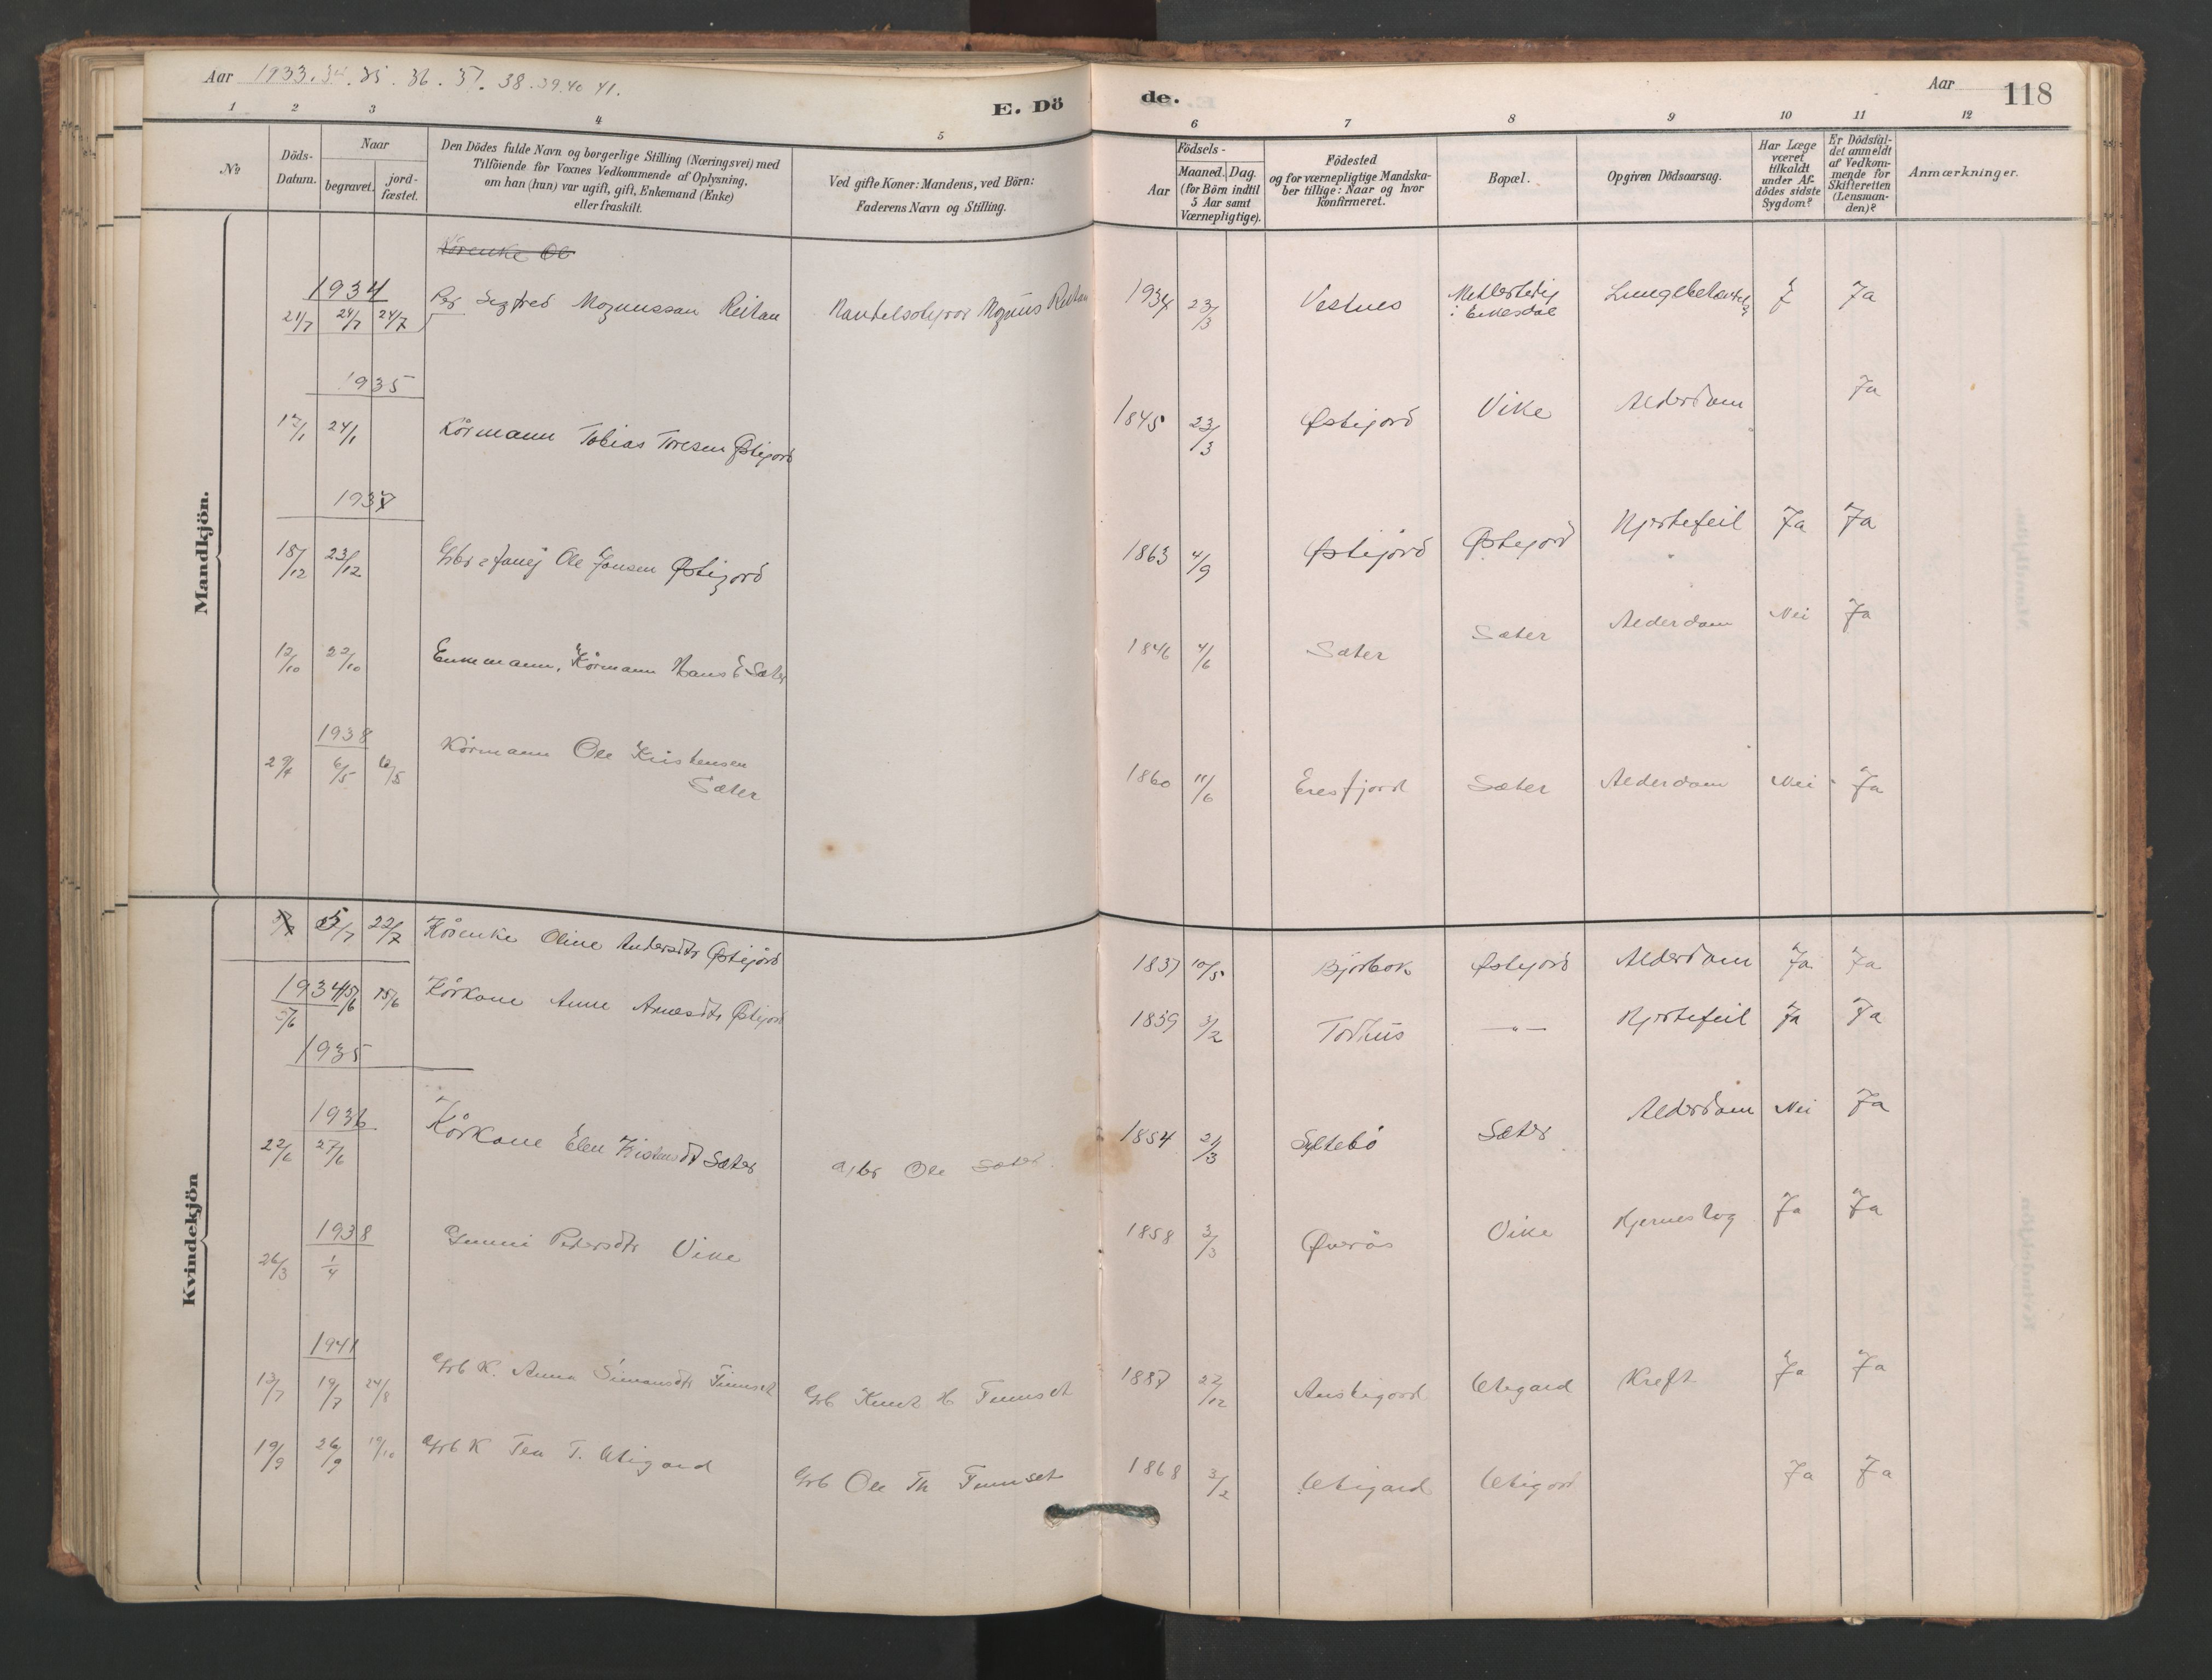 Aar 1933. 34. 35. 36. 37. 38. 39. 40 41.
E. Dö
de.
Aar
118
1 2 3 4 5 6 7 8 9 10 11 12
No
Döds-
Datum.
Naar
begravet.
jord-
fæstet.
Den Dödes fulde Navn og borgerlige Stilling (Næringsvei) med
Tilföiende for Voxnes Vedkommende af Oplysning,
om han (hun) var ugift, gift, Enkemand (Enke)
eller fraskilt.
Ved gifte Koner: Mandens, ved Börn:
Faderens Navn og Stilling.
Födsels-
Aar
Maaned. Dag.
(for Börn indtil
5 Aar samt
Værnepligtige).
Födested
og for værnepligtige Mandska-
ber tillige: Naar og hvor
konfirmeret.
Bopæl.
Opgiven Dödsaarsag.
Har Læge
været
tilkaldt
under Af-
dödes sidste
Sygdom?
Er Dödsfal-
det anmeldt
af Vedkom-
mende for
Skifteretten
(Lensman-
den)?
Anmærkninger.
Mandkjön.
Kårenke Ol
1934
21/7 24/7 24/7 Per Sigfred Magnussan Reitan Handelsstyrer Magnus Reitan 1934 23/3 Vestnes Eikesdal Ja
1935
24/1 Kårmann Tobias Toresen Østigord 1845 23/3 Østigord Vike Alderdom Ja
1937
18/12 23/12 Ole Jansen Østigord 1863 4/9 Østigord Østigord Hjertefeil Ja Ja
12/10 22/10 Enkmann, Kårmann Hans E Sæter 1846 4/6 Sæter Sæter Alderdom Nei Ja
1938
29/4 6/5 Kårmann Ole Kristensen
Sæter 1860 11/6 Eresfjord Sæter Alderdom Nei Ja
Kvindekjön
5/7 22/7 Kårenke Oline Andersdtr Østigord 1837 10/5 Bjørbok Østigord Alderdom Ja Ja
1934 15/6 15/6 Kårkone Anne Arnesdtr Østigord 1859 3/2 Torhus — " — Hjertefeil Ja Ja
1935
1936
22/6 27/6 Kårkone Elen Kristensdt Sæter Gbr Ole Sæter 1854 21/3 Syltebö Sæter Alderdom Nei Ja
1938
26/3 1/4 Gunni Petersdtr Vike 1858 3/3 Øverås Vike Hjerneslag Ja Ja
1941
13/7 19/7 24/8 Grb K. Anna Simonsdtr Finnset Grb Knut H Finnset 1887 22/12 Austigord Utigard Kreft Ja Ja
19/9 26/9 19/10 Grb K Tea T. Utigard Grb Ole Th Finnset 1868 3/2 Utigard Utigord Ja Ja